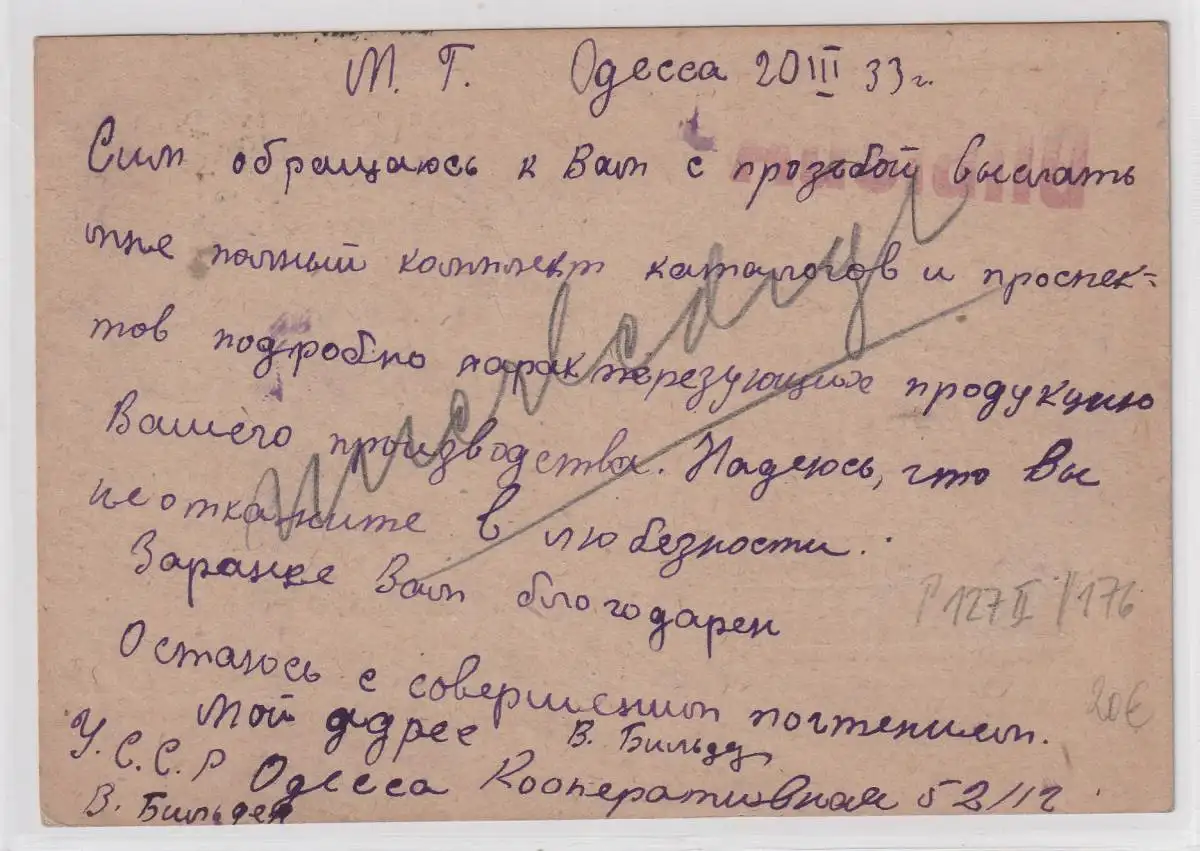 М. Г. Одесса 20 III 33 г.
Сим обращаюсь к Вам с прозьбой выслать
мне полный комплект каталогов и проспек=
тов подробно характерезующих продукцию
Вашего производства. Надеюсь, что Вы
не откажите в любезности.
Заранее Вам благодарен
Остаюсь с совершеным почтением.
Мой адрес В. Бильд
У.С.С.Р Одесса Кооперативная 52/12
В. Бильдер
P 127 II / 176
20€